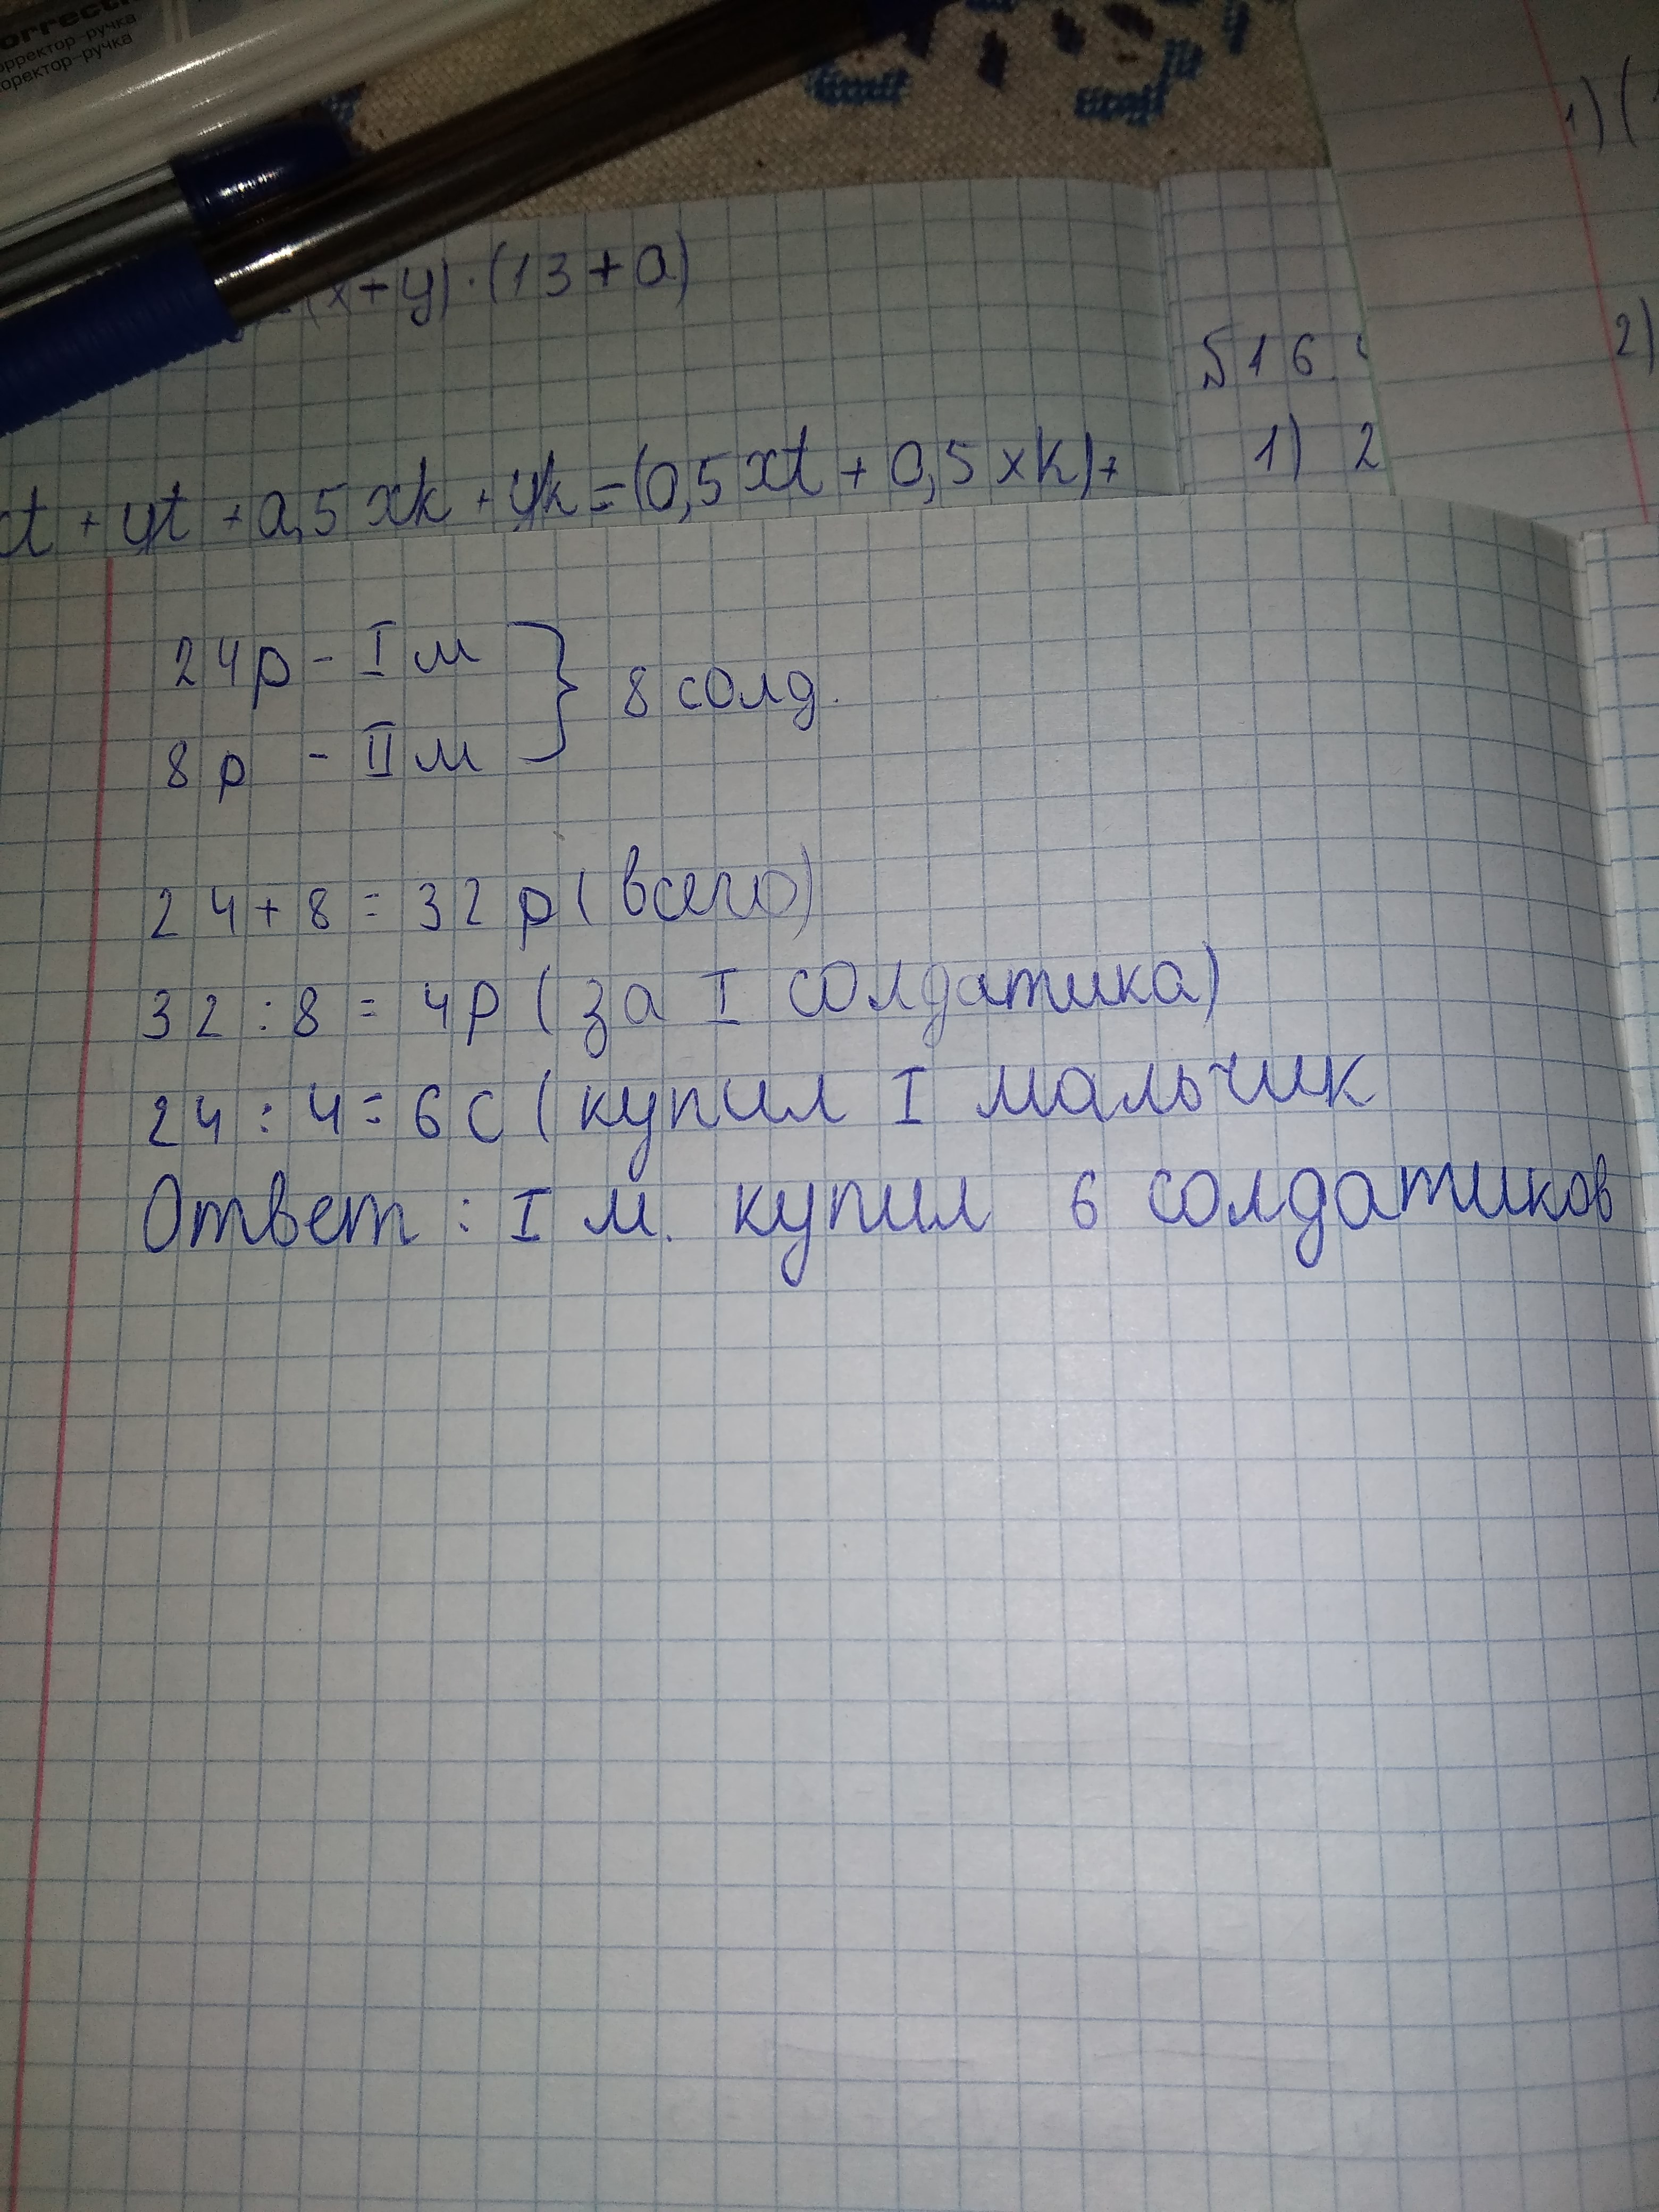 орректор-ручка
коректор-ручка
(x+y)·(13+a)
1)
2)
1) 2
+ yt + 0,5 xk + yk = (0,5 xt + 0,5 xk)+
24р - I м
8 солд.
8 р - II м
24 + 8 = 32 р (всего)
32 : 8 = 4р (за I солдатика)
24 : 4 = 6 с (купил I мальчик
Ответ : I м. купил 6 солдатиков